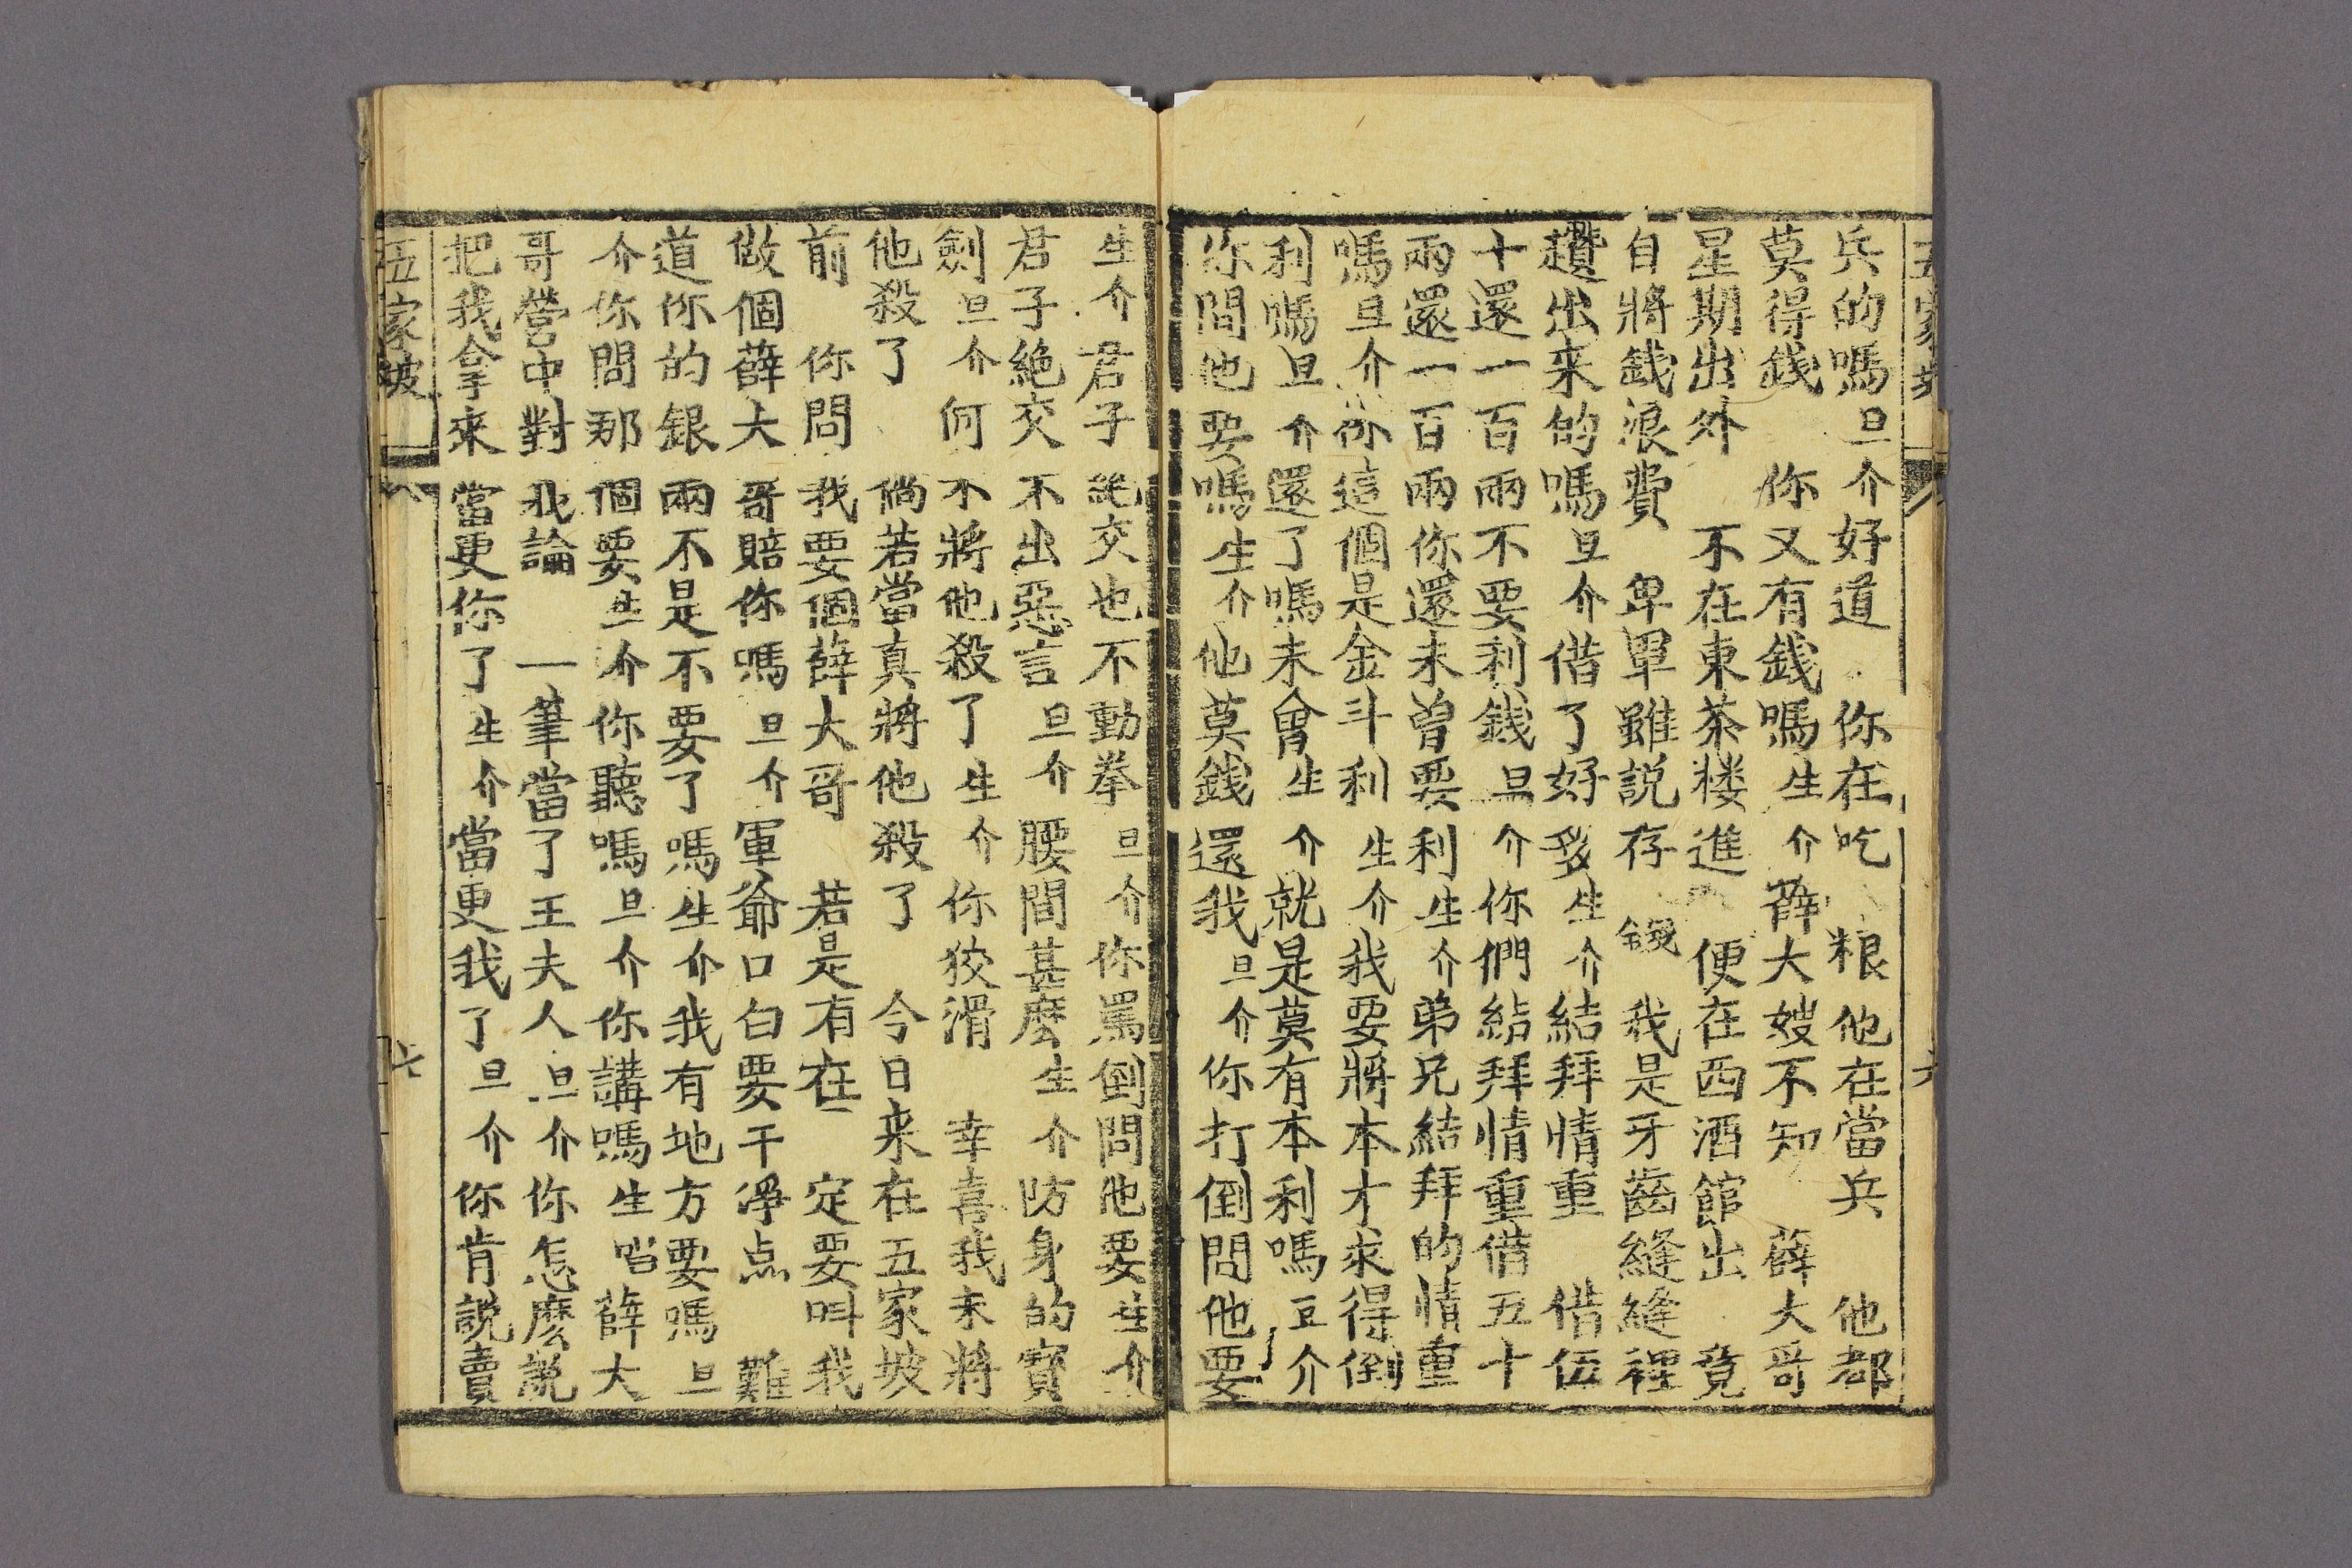 兵的嗎旦介好道 你在吃 粮他在當兵 他都
莫得錢 你又有錢嗎生介薛大嫂不知 薛大哥
星期出外 不在東茶楼進 便在西酒館出 竟
自將錢浪費 卑單雖説存 錢 我是牙齒縫縫裡
趲出来的嗎旦介借了好多生介結拜情重 借伍
十還一百兩不要利錢旦介你們結拜情重借五十
兩還一百兩你還未曽要利生介弟兄結拜的情重
嗎旦介你這個是金斗利 生介我要將本才求得倒
利嗎旦介還了嗎未會生介就是莫有本利嗎豆介
你間他要嗎生介他莫錢還我旦介你打倒問他要
生介君子絶交也不動拳旦介你罵倒問他要生介
君子絶交不出惡言旦介腰間甚麽生介防身的寳
劍旦介何不將他殺了生介你狡滑 幸喜我未將
他殺了 倘若當真將他殺了 今日来在五家坡
前 你問我要個薛大哥 若是有在 定要叫我
做個薛大哥賠你嗎旦介軍爺口白要干凈点 難
道你的銀兩不是不要了嗎生介我有地方要嗎旦
介你問那個要生介你聽嗎旦介你講嗎生唱薛大
哥營中對我論 一筆當了王夫人旦介你怎麽説
把我拿来當更你了生介當更我了旦介你肯説賣
伍家坡 七